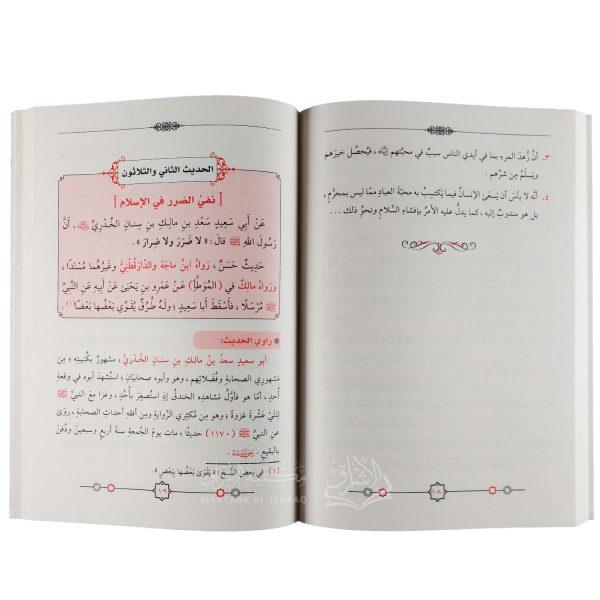 ٣. أنَّ زُهدَ المرءِ بما في أيدي الناس سببٌ في محبَّتهم إيَّاه ، فيُحصِّل خيرَهم
ويَسلَمُ مِن شرِّهم .
٤. أنَّه لا بأسَ أن يَسعَى الإنسانُ فيما يَكتسِبُ به محبَّةَ العبادِ ممَّا ليس بمحرَّمٍ ،
بل هو مندوبٌ إليه ، كما يدلُّ عليه الأمرُ بإفشاءِ السَّلامِ ونحوُ ذلك ...
١٠٨
الحديث الثاني والثلاثون
[ نفيُ الضرر في الإسلام ]
عَنْ أَبِي سَعِيدٍ سَعْدِ بنِ مالِكِ بنِ سِنانٍ الخُدْرِيِّ ﵁ ، أَنَّ
رَسُولَ اللهِ ﷺ قالَ: « لا ضَرَرَ ولا ضِرارَ » .
حَدِيثٌ حَسَنٌ ، رَواهُ ابنُ ماجَهْ والدَّارَقُطْنِيُّ وغَيْرُهُما مُسْنَدًا ،
ورَواهُ مالِكٌ في ( المُوَطَّأِ ) عَنْ عَمْرِو بنِ يَحْيَىٰ عَنْ أَبِيهِ عَنِ النَّبِيِّ
ﷺ مُرْسَلًا ، فَأَسْقَطَ أَبا سَعِيدٍ ؛ ولَهُ طُرُقٌ يُقَوِّي بَعْضُها بَعْضًا(١) .
راوي الحديث:
أبو سعيدٍ سعدُ بنُ مالكِ بنِ سِنانٍ الخُدْريُّ ، مشهورٌ بكُنيتِه ؛ مِن
مشهوري الصحابةِ وفُضَلائِهم ، وهو وأبوه صحابيَّان ؛ استُشهِدَ أبوه في وقعةِ
أُحدٍ ، أمَّا هو فأوَّلُ مشاهدِه الخندقُ إذِ استُصغِرَ بأُحُدٍ ، وغزَا معَ النبيِّ ﷺ
ثِنْتَيْ عَشْرةَ غزوةً ؛ وهو مِن مُكثِري الرِّوايةِ ومِن أفقهِ أحداثِ الصحابةِ ، روَىٰ
عنِ النبيِّ ﷺ (١١٧٠) حديثًا ؛ مات يومَ الجُمعةِ سنةَ أربعٍ وسبعينَ ودُفنَ
بالبقيعِ . ﵁
(١) في بعض النُّسَخ : « يَقْوَىٰ بَعْضُها بِبَعْضٍ » .
١٠٩
MAKTABA AL-ICHRAQ